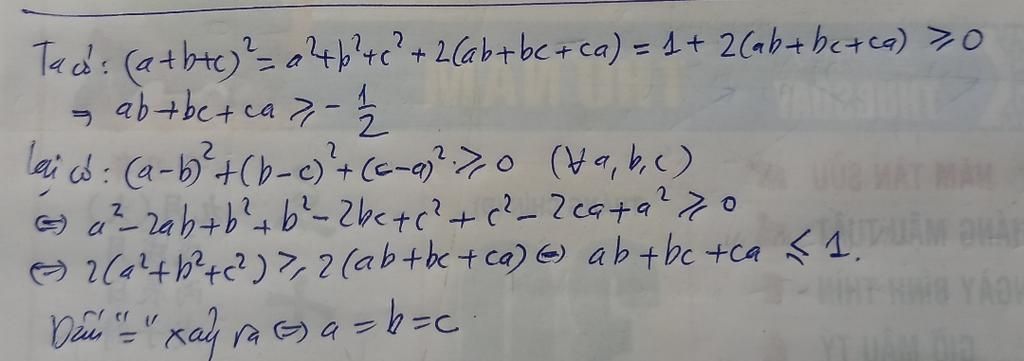 Ta có: (a+b+c)² = a²+b²+c² + 2(ab+bc+ca) = 1 + 2(ab+bc+ca) ⩾ 0
⇒ ab+bc+ca ⩾ -1/2
lại có: (a-b)²+(b-c)²+(c-a)² ⩾ 0 (∀a,b,c)
⇔ a²-2ab+b²+b²-2bc+c²+c²-2ca+a² ⩾ 0
⇔ 2(a²+b²+c²) ⩾ 2(ab+bc+ca) ⇔ ab+bc+ca ⩽ 1.
Dấu "=" xảy ra ⇔ a=b=c